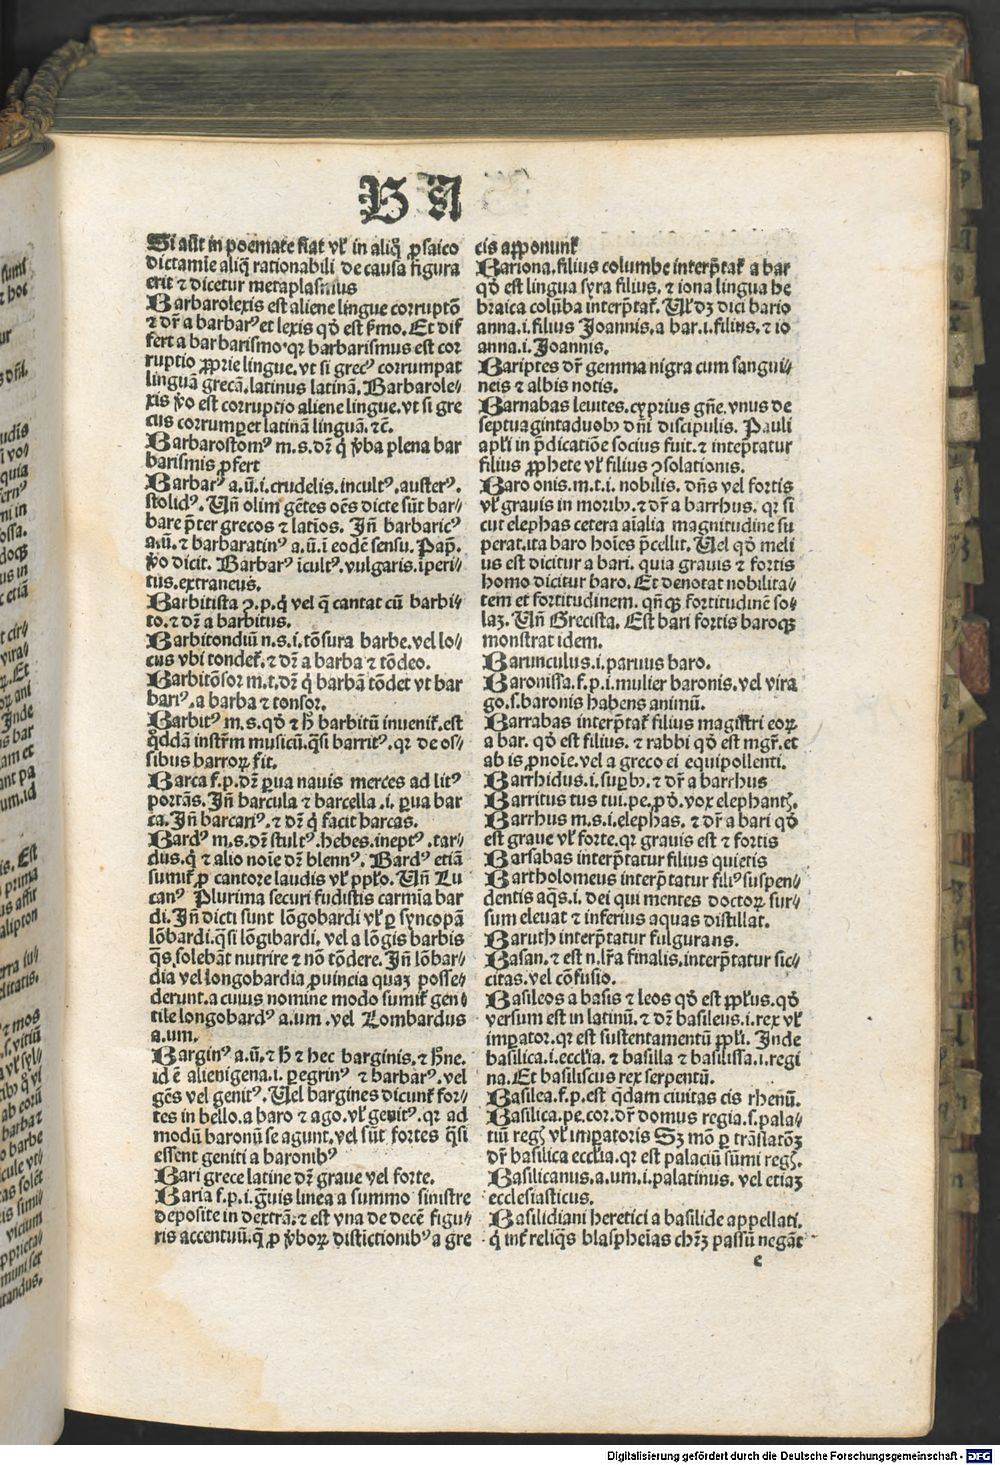 B A
Si aūt in poemate fiat vł in aliq̄ ꝓsaico
dictamīe aliq̄ rationabili de causa figura
erit ⁊ dicetur metaplasmus
Barbarolexis est aliene lingue corruptō
⁊ dr̄ a barbarꝰ et lexis qđ est ẜmo. Et dif
fert a barbarismo. qꝛ barbarismus est cor
ruptio ꝓprie lingue. vt si grecꝰ corrumpat
linguā grecā. latinus latinā. Barbarole⸗
xis ꝟo est corruptio aliene lingue. vt si gre
cus corrumꝑet latinā linguā. ⁊c̄.
Barbarostomꝰ m.s. dr̄ q̇ ꝟba plena bar
barismis ꝓfert
Barbarꝰ a.ū. i. crudelis. incultꝰ. austerꝰ.
stolidꝰ. Vn̄ olim gētes oēs dicte sūt bar⸗
bare p̄ter grecos ⁊ latīos. Jn̄ barbaricꝰ
a.ū. ⁊ barbaratinꝰ a.ū. ī eodē sensu. Pap̄.
ꝟo dicit. Barbarꝰ īcultꝰ. vulgaris. īperi⸗
tus. extraneus.
Barbitista ꝛ.p. q̇ vel q̄ cantat cū barbi⸗
to. ⁊ dr̄ a barbitus.
Barbitondiū n.s. i. tōsura barbe. vel lo⸗
cus vbi tondet᷑. ⁊ dr̄ a barba ⁊ tōdeo.
Barbitōsor m.t. dr̄ q̇ barbā tōdet vt bar
bariꝰ. a barba ⁊ tonsor.
Barbitꝰ m.s. qđ ⁊ ħ barbitū inuenit᷑. est
q̄ddā instr̄m musicū. q̄si barritꝰ. qꝛ de os⸗
sibus barroꝝ fit.
Barca f.p. dr̄ ꝑua nauis merces ad litꝰ
portās. Jn̄ barcula ⁊ barcella .i. ꝑua bar
ca. Jn̄ barcariꝰ. ⁊ dr̄ q̇ facit barcas.
Bardꝰ m.s. dr̄ stultꝰ. hebes. ineptꝰ. tar⸗
dus. q̇ ⁊ alio noīe dr̄ blennꝰ. Bardꝰ etiā
sumit᷑ ꝓ cantore laudis vł ppło. Vn̄ Lu
canꝰ Plurima securi fudistis carmīa bar
di. Jn̄ dicti sunt lōgobardi vł ꝑ syncopā
lōbardi. q̄si lōgibardi. vel a lōgis barbis
q̄s solebāt nutrire ⁊ nō tōdere. Jn̄ lōbar⸗
dia vel longobardia ꝓuincia quaꝫ posse⸗
derunt. a cuius nomine modo sumit᷑ gen⸗
tile longobardꝰ a.um. vel Lombardus
a.um.
Barginꝰ a.ū. ⁊ ħ ⁊ hec barginis. ⁊ ħne.
id ē alienigena. i. ꝑegrinꝰ ⁊ barbarꝰ. vel
gēs vel genitꝰ. Vel bargines dicunt᷑ for⸗
tes in bello. a baro ⁊ ago. vł genitꝰ. qꝛ ad
modū baronū se agunt. vel sūt fortes q̄si
essent geniti a baronibꝰ
Bari grece latine dr̄ graue vel forte.
Baria f.p. i. q̄uis linea a summo sinistre
deposite in dextrā. ⁊ est vna de decē figu⸗
ris accentuū. q̄ ꝓ ꝟboꝝ distictionibꝰ a gre
cis apponunt᷑
Bariona. filius columbe interp̄tat᷑ a bar
qđ est lingua syra filius. ⁊ iona lingua he
braica colūba interp̄tat᷑. Vł dꝫ dici bario
anna. i. filius Joannis. a bar. i. filius. ⁊ io
anna. i. Joannis.
Bariptes dr̄ gemma nigra cum sangui⸗
neis ⁊ albis notis.
Barnabas leuites. cyprius gn̄e. vnus de
septuagintaduobꝫ dn̄i discipulis. Pauli
apłi in p̄dicatiōe socius fuit. ⁊ intep̄tatur
filius ꝓphete vł filius ꝯsolationis.
Baro onis. m.t. i. nobilis. dn̄s vel fortis
vł grauis in moribꝫ. ⁊ dr̄ a barrhus. qꝛ si
cut elephas cetera aīalia magnitudine su
perat. ita baro hoīes p̄cellit. Vel qđ meli
us est dicitur a bari. quia grauis ⁊ fortis
homo dicitur baro. Et denotat nobilita⸗
tem et fortitudinem. qn̄qꝫ fortitudinē so⸗
laꝫ. Vn̄ Grecista. Est bari fortis baroqꝫ
monstrat idem.
Barunculus. i. paruus baro.
Baronissa. f.p. i. mulier baronis. vel vira
go. s. baronis habens animū.
Barrabas interp̄tat᷑ filius magistri eoꝝ
a bar. qđ est filius. ⁊ rabbi qđ est mgr̄. et
ab is ꝓnoīe. vel a greco ei equipollenti.
Barrhidus. i. suꝑbꝫ. ⁊ dr̄ a barrhus
Barritus tus tui. pe. ꝓđ. vox elephantꝭ.
Barrhus m.s. i. elephas. ⁊ dr̄ a bari qđ
est graue vł forte. qꝛ grauis est ⁊ fortis
Barsabas interp̄tatur filius quietis
Bartholomeus interp̄tatur filiꝰ suspen⸗
dentis aq̄s. i. dei qui mentes doctoꝝ sur⸗
sum eleuat ⁊ inferius aquas distillat.
Baruth interp̄tatur fulgurans.
Basan. ⁊ est n. lr̄a finalis. interp̄tatur sic⸗
citas. vel cōfusio.
Basileos a basis ⁊ leos qđ est ppłus. qđ
versum est in latinū. ⁊ dr̄ basileus. i. rex vł
imꝑator. qꝛ est sustentamentū ppłi. Jnde
basilica. i. ecclīa. ⁊ basilla ⁊ basilissa. i. regi
na. Et basiliscus rex serpentū.
Basilea. f.p. est q̄dam ciuitas cis rhenū.
Basilica. pe. cor. dr̄ domus regia. s. pala⸗
tiū regꝭ vł imꝑatoris Sꝫ mō ꝑ trāslatōꝫ
dr̄ basilica ecclīa. qꝛ est palaciū sūmi regꝭ.
Basilicanus. a.um. i. palatinus. vel etiaꝫ
ecclesiasticus.
Basilidiani heretici a basilide appellati.
q̇ int᷑ reliq̄s blasphēias chr̄ꝫ passū negāt
e
Digitalisierung gefördert durch die Deutsche Forschungsgemeinschaft - DFG